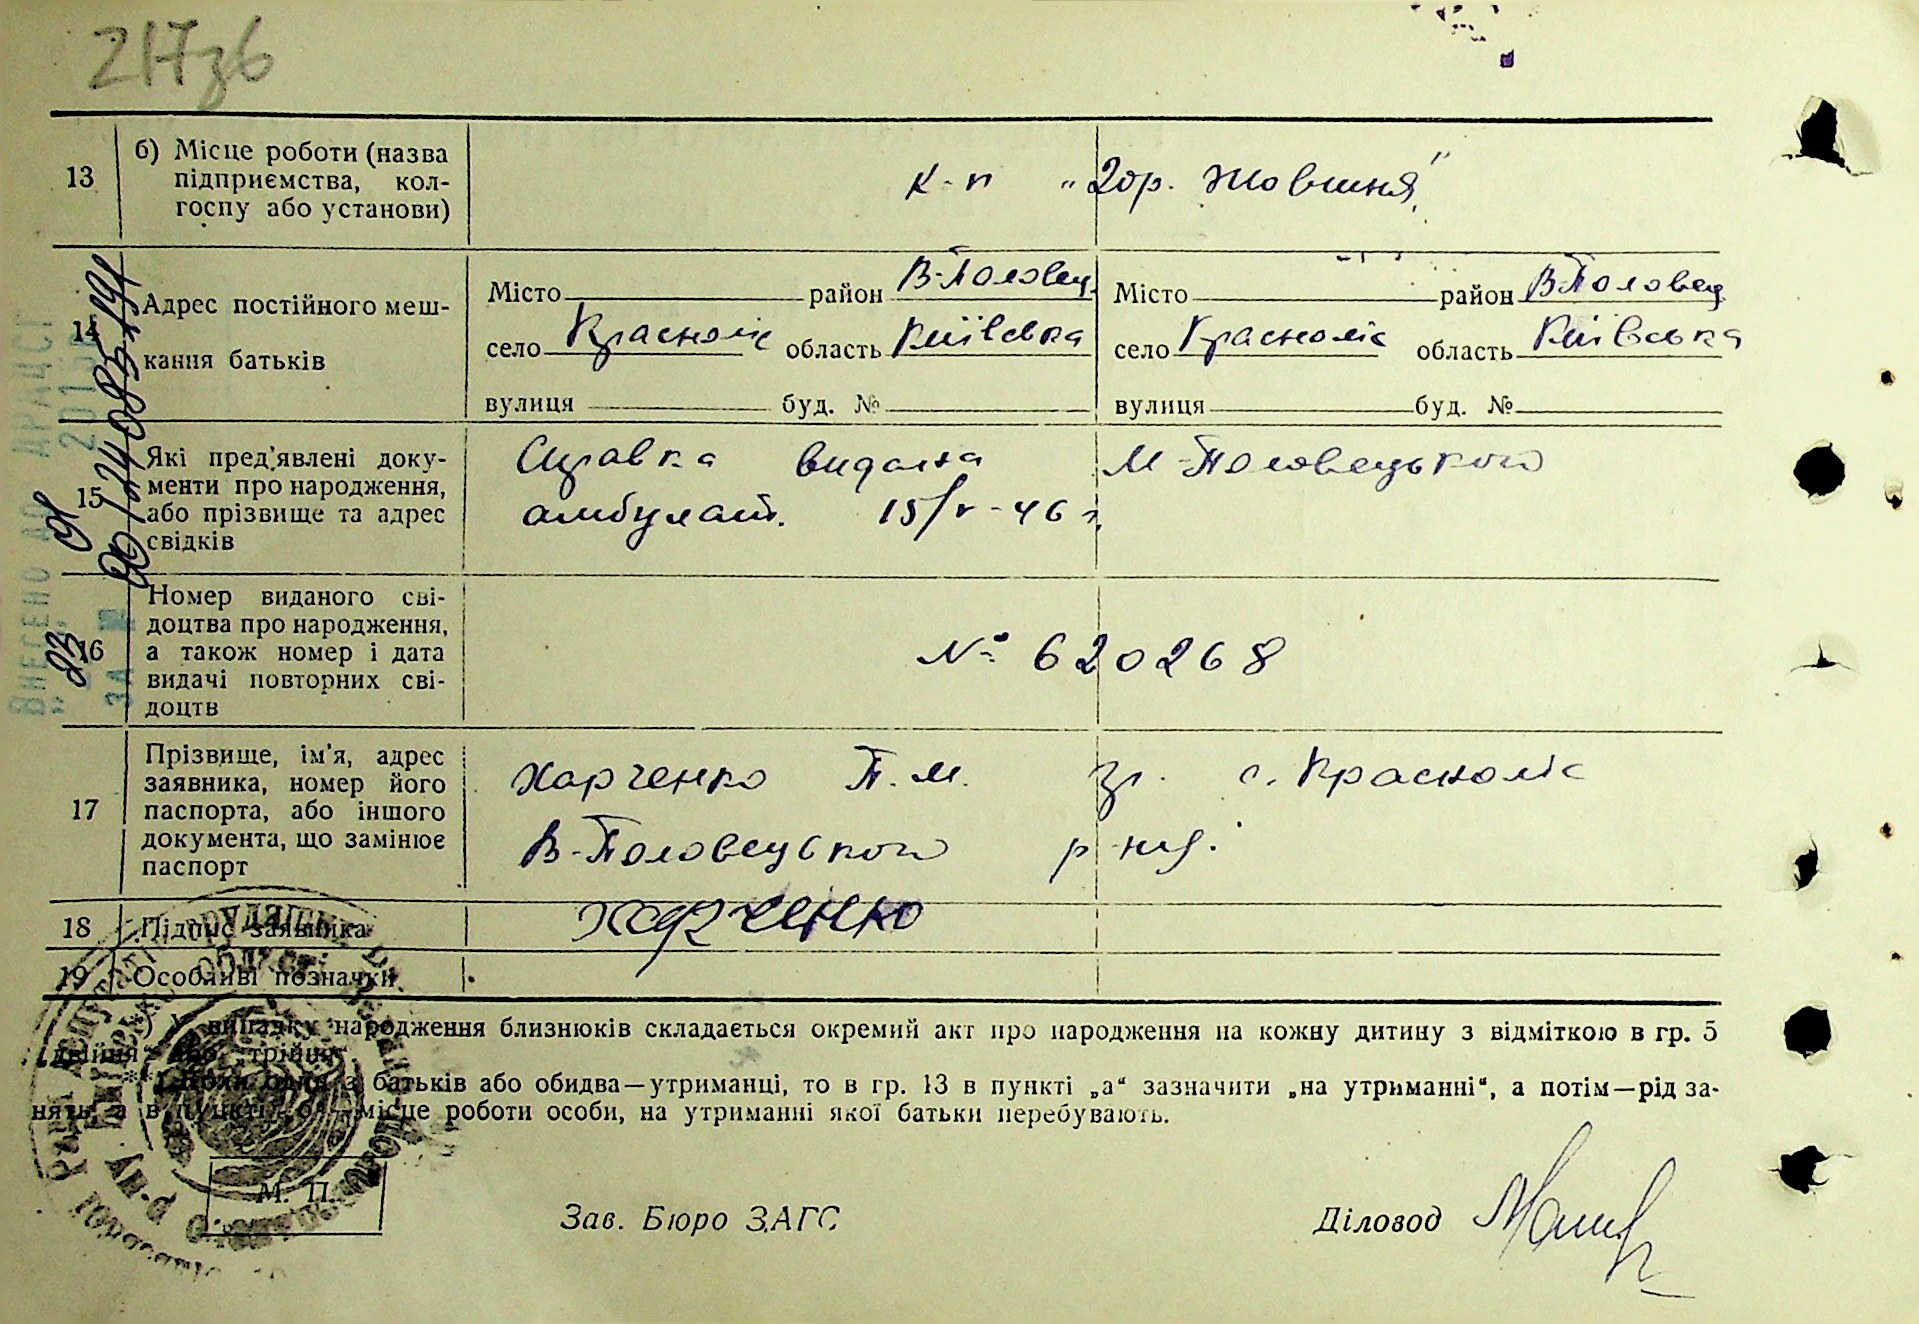 217зб
13 б) Місце роботи (назва
підприємства, кол-
госпу або установи)
к-п „2 ор. Жовтня"
14 Адрес постійного меш-
кання батьків
Місто район В-Половец.
село Красноліс область Київська
вулиця буд. №
Місто район В-Половец.
село Красноліс область Київська
вулиця буд. №
15 Які пред'явлені доку-
менти про народження,
або прізвище та адрес
свідків
Справка видана М-Половецького
амбулат. 15/V-46 г.
16 Номер виданого сві-
доцтва про народження,
а також номер і дата
видачі повторних сві-
доцтв
№ 620268
17 Прізвище, ім'я, адрес
заявника, номер його
паспорта, або іншого
документа, що замінює
паспорт
Харченко П. М. гр. с. Красноліс
В-Половецького р-ну.
18 Підпис заявника
Харченко
19 Особливі позначки
*) У випадку народження близнюків складається окремий акт про народження на кожну дитину з відміткою в гр. 5
„двійня" або „трійня".
**) Коли один з батьків або обидва—утриманці, то в гр. 13 в пункті „а" зазначити „на утриманні", а потім—рід за-
нять, а в пункті „б"—місце роботи особи, на утриманні якої батьки перебувають.
М. П.
Зав. Бюро ЗАГС
Діловод
ВНЕСЕНО ДО ДРАЦСГ